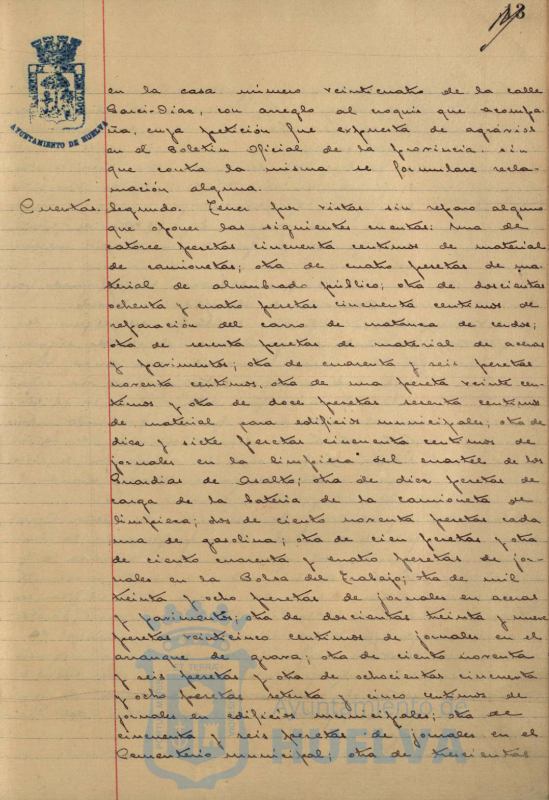 AYUNTAMIENTO DE HUELVA
en la casa número veinticuatro de la calle
Garci-Diaz, con arreglo al croquis que acompa-
ña, cuya petición fue expuesta de agravios
en el Boletin Oficial de la provincia, sin
que contra la misma se formulase recla-
mación alguna.
Cuentas. Segundo. Tener por vistas sin reparo alguno
que oponer las siguientes cuentas: una de
catorce pesetas cincuenta centimos de material
de camionetas; otra de cuatro pesetas de ma-
terial de alumbrado público; otra de doscientas
ochenta y cuatro pesetas cincuenta centimos de
reparación del carro de matanza de cerdos;
otra de pesetas de material de aceras
y pavimentos; otra de cuarenta y seis pesetas
noventa centimos, otra de una peseta veinte cen-
timos y otra de doce pesetas sesenta centimos
de material para edificios municipales; otra de
diez y siete pesetas cincuenta centimos de
jornales en la limpieza del cuartel de los
Guardias de Asalto; otra de diez pesetas de
carga de la bateria de la camioneta de
limpieza; dos de ciento noventa pesetas cada
una de gasolina; otra de cien pesetas y otra
de ciento cuarenta y cuatro pesetas de jor-
nales en la Bolsa del Trabajo; otra de mil
treinta y ocho pesetas de jornales en aceras
y pavimentos; otra de doscientas treinta y nueve
pesetas veinticinco centimos de jornales en el
arranque de grava; otra de ciento noventa
y seis pesetas y otra de ochocientas cincuenta
y ocho pesetas setenta y cinco centimos de
jornales en edificios municipales; otra de
cincuenta y seis pesetas de jornales en el
Cementerio municipal; otra de trescientas
Ayuntamiento de
HUELVA